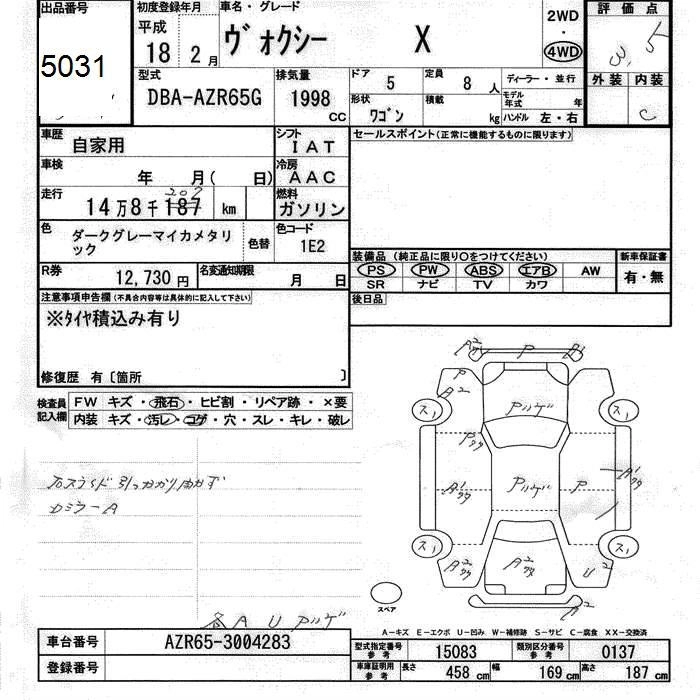 出品番号
5031
初度登録年月
平成
18 2 月
車名・グレード
ヴォクシー X
2WD
・
4WD
評価点
3.5
外装 内装
C
型式
DBA-AZR65G
排気量
1998 CC
ドア 5
定員 8 人
ディーラー・並行
形状 ワゴン
積載 kg
モデル年式 年
ハンドル 左・右
車歴 自家用
シフト IAT
セールスポイント(正常に機能するものに限ります)
車検 年 月( 日)
冷房 AAC
走行 14万8千187 km
207
燃料 ガソリン
色 ダークグレーマイカメタリック
色替
色コード 1E2
装備品 (純正品に限り○をつけてください)
新車保証書
PS PW ABS エアB AW
有・無
SR ナビ TV カワ
R券 12,730 円
名変通知期限 月 日
後日品
注意事項申告欄(不具合内容等は具体的に記入して下さい)
※タイヤ積込み有り
修復歴 有〔箇所 〕
検査員記入欄
FW キズ・飛石・ヒビ割・リペア跡・×要
内装 キズ・汚レ・コゲ・穴・スレ・キレ・破レ
A2 P
P
A2
スノ スノ
Pツゲ
Pツゲ P
スノ スノ
U2
A2
スペア
各 A U Pツゲ
A-キズ E-エクボ U-凹み W-補修跡 S-サビ C-腐食 XX-交換済
車台番号 AZR65-3004283
登録番号
型式指定番号 参考 15083
類別区分番号 参考 0137
車庫証明用 参考 長さ 458 cm 幅 169 cm 高さ 187 cm